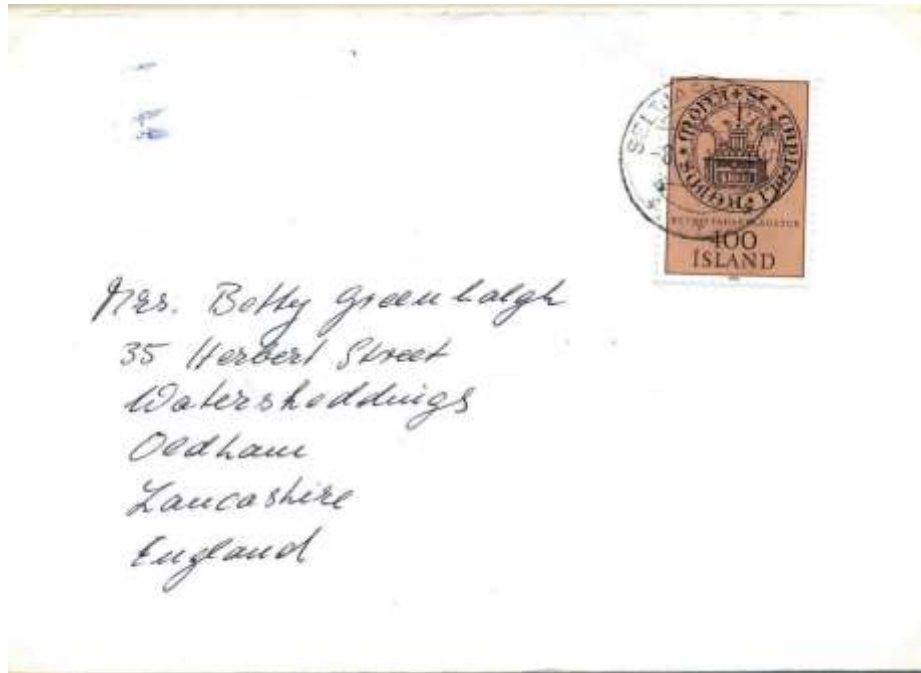 SELTJARN
400
ÍSLAND
Mrs. Betty Greenhalgh
35 Herbert Street
Watersheddings
Oldham
Lancashire
England